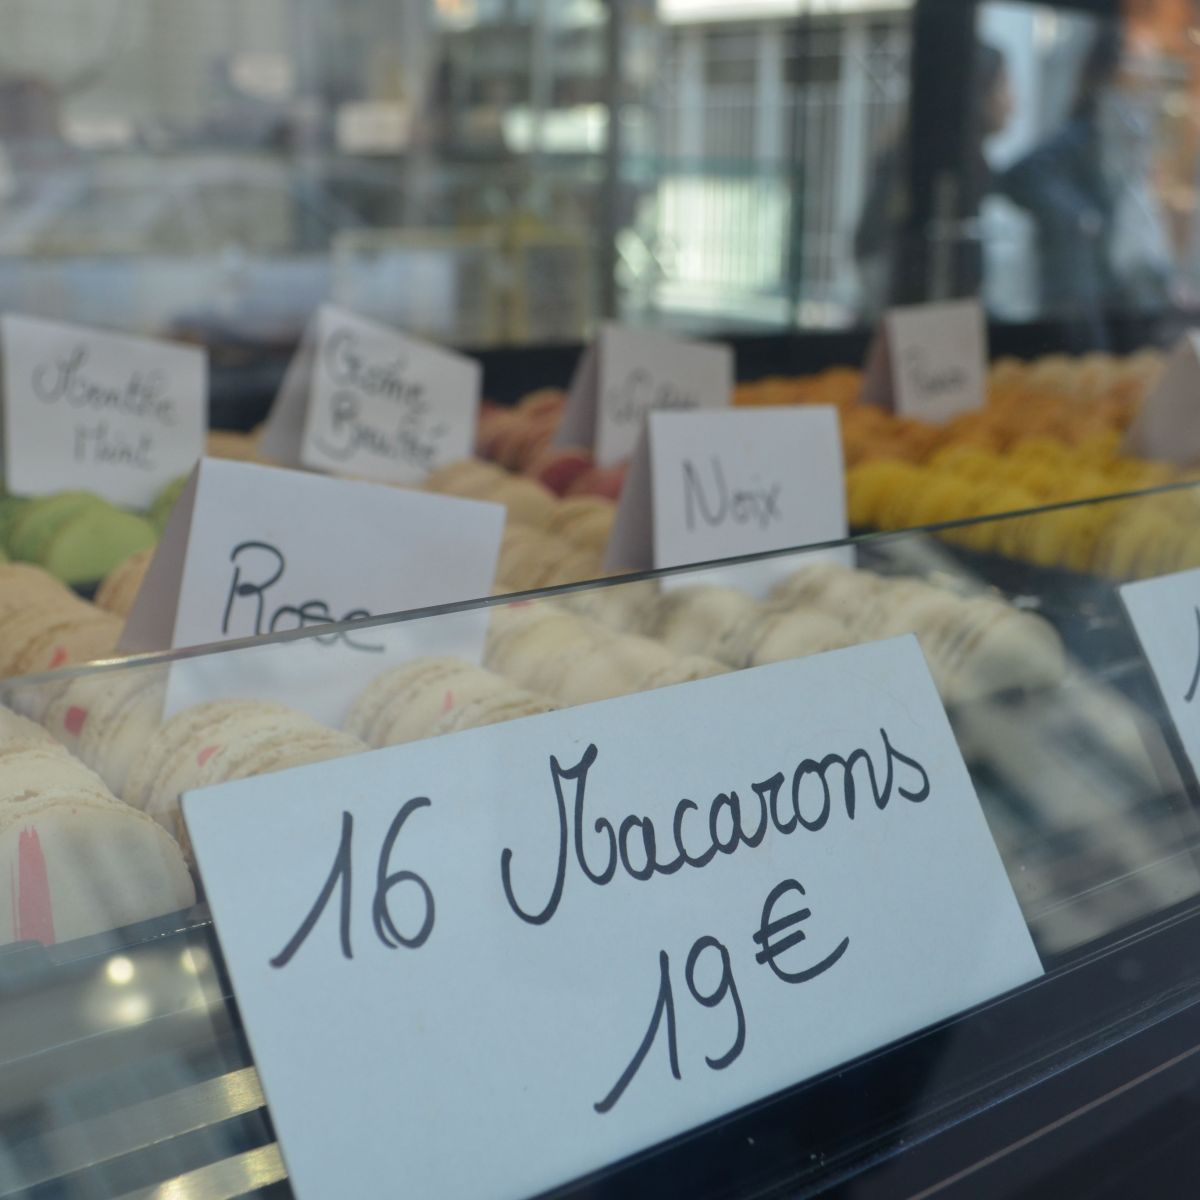 Menthe
Mint
Crème
Brulée
Noix
Rose
16 Macarons
19€